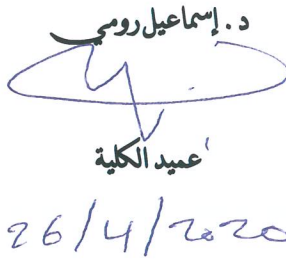 د. إسماعيل رومي
عميد الكلية
26/4/2020